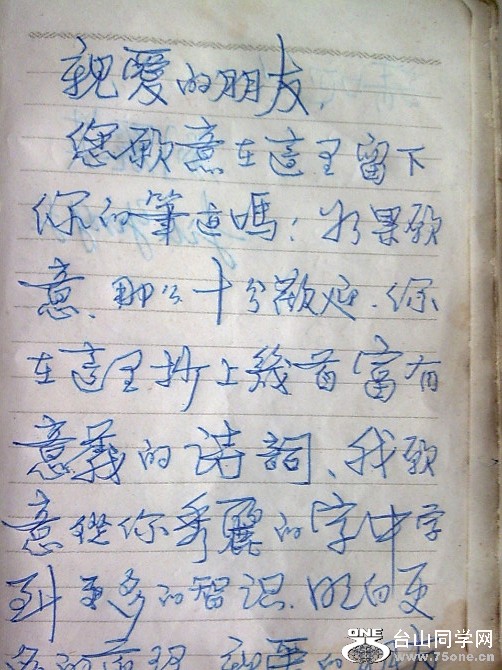 親愛的朋友
您願意在這里留下
你的筆迹嗎！如果願
意、那么十分歡迎.你
在這里抄上幾首富有
意義的诗詞、我願
意從你秀麗的字中学
到更多的智识.明白更
多的
台山同学网
www.75one.cn
ONE